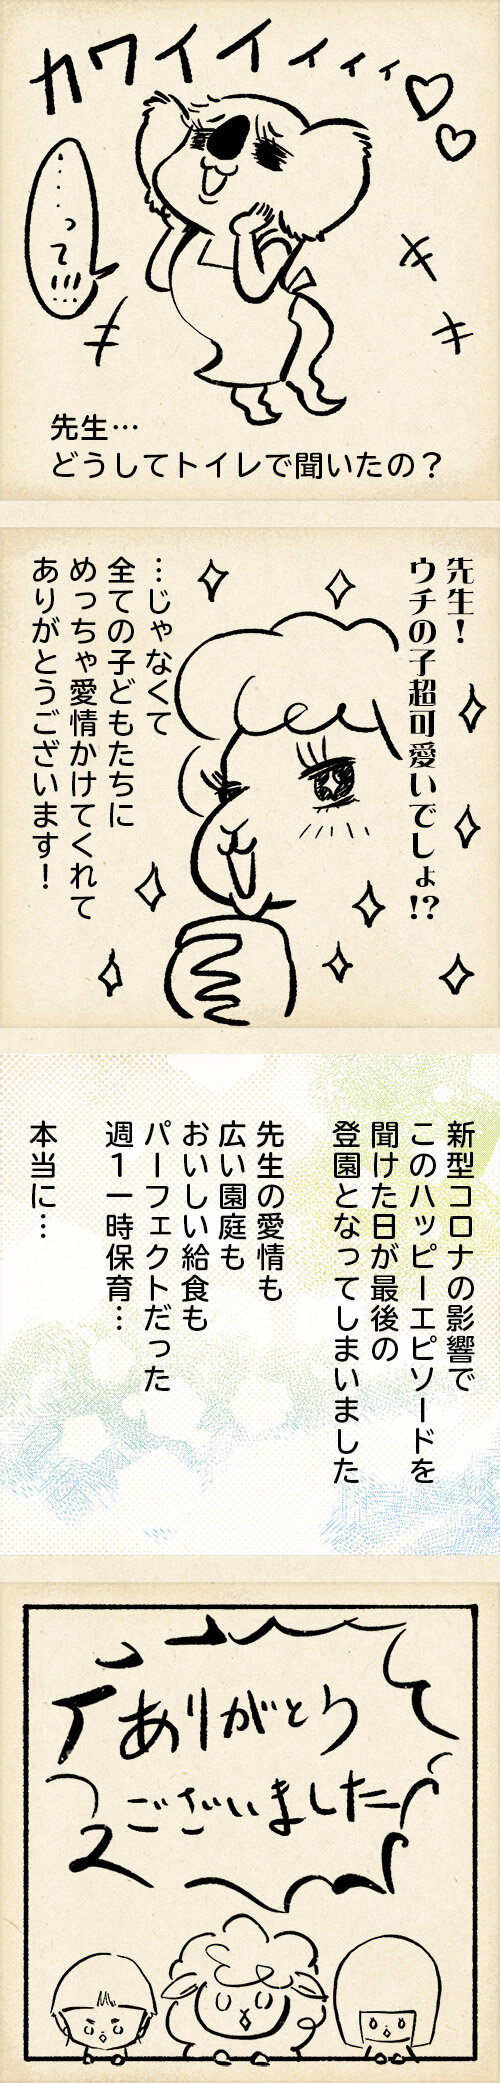 カワイイィィィ♡♡
‥‥って!!!…
先生…
どうしてトイレで聞いたの？
先生！
ウチの子超可愛いでしょ!?
…じゃなくて
全ての子どもたちに
めっちゃ愛情かけてくれて
ありがとうございます！
新型コロナの影響で
このハッピーエピソードを
聞けた日が最後の
登園となってしまいました
先生の愛情も
広い園庭も
おいしい給食も
パーフェクトだった
週１一時保育…
本当に…
ありがとう
ございました